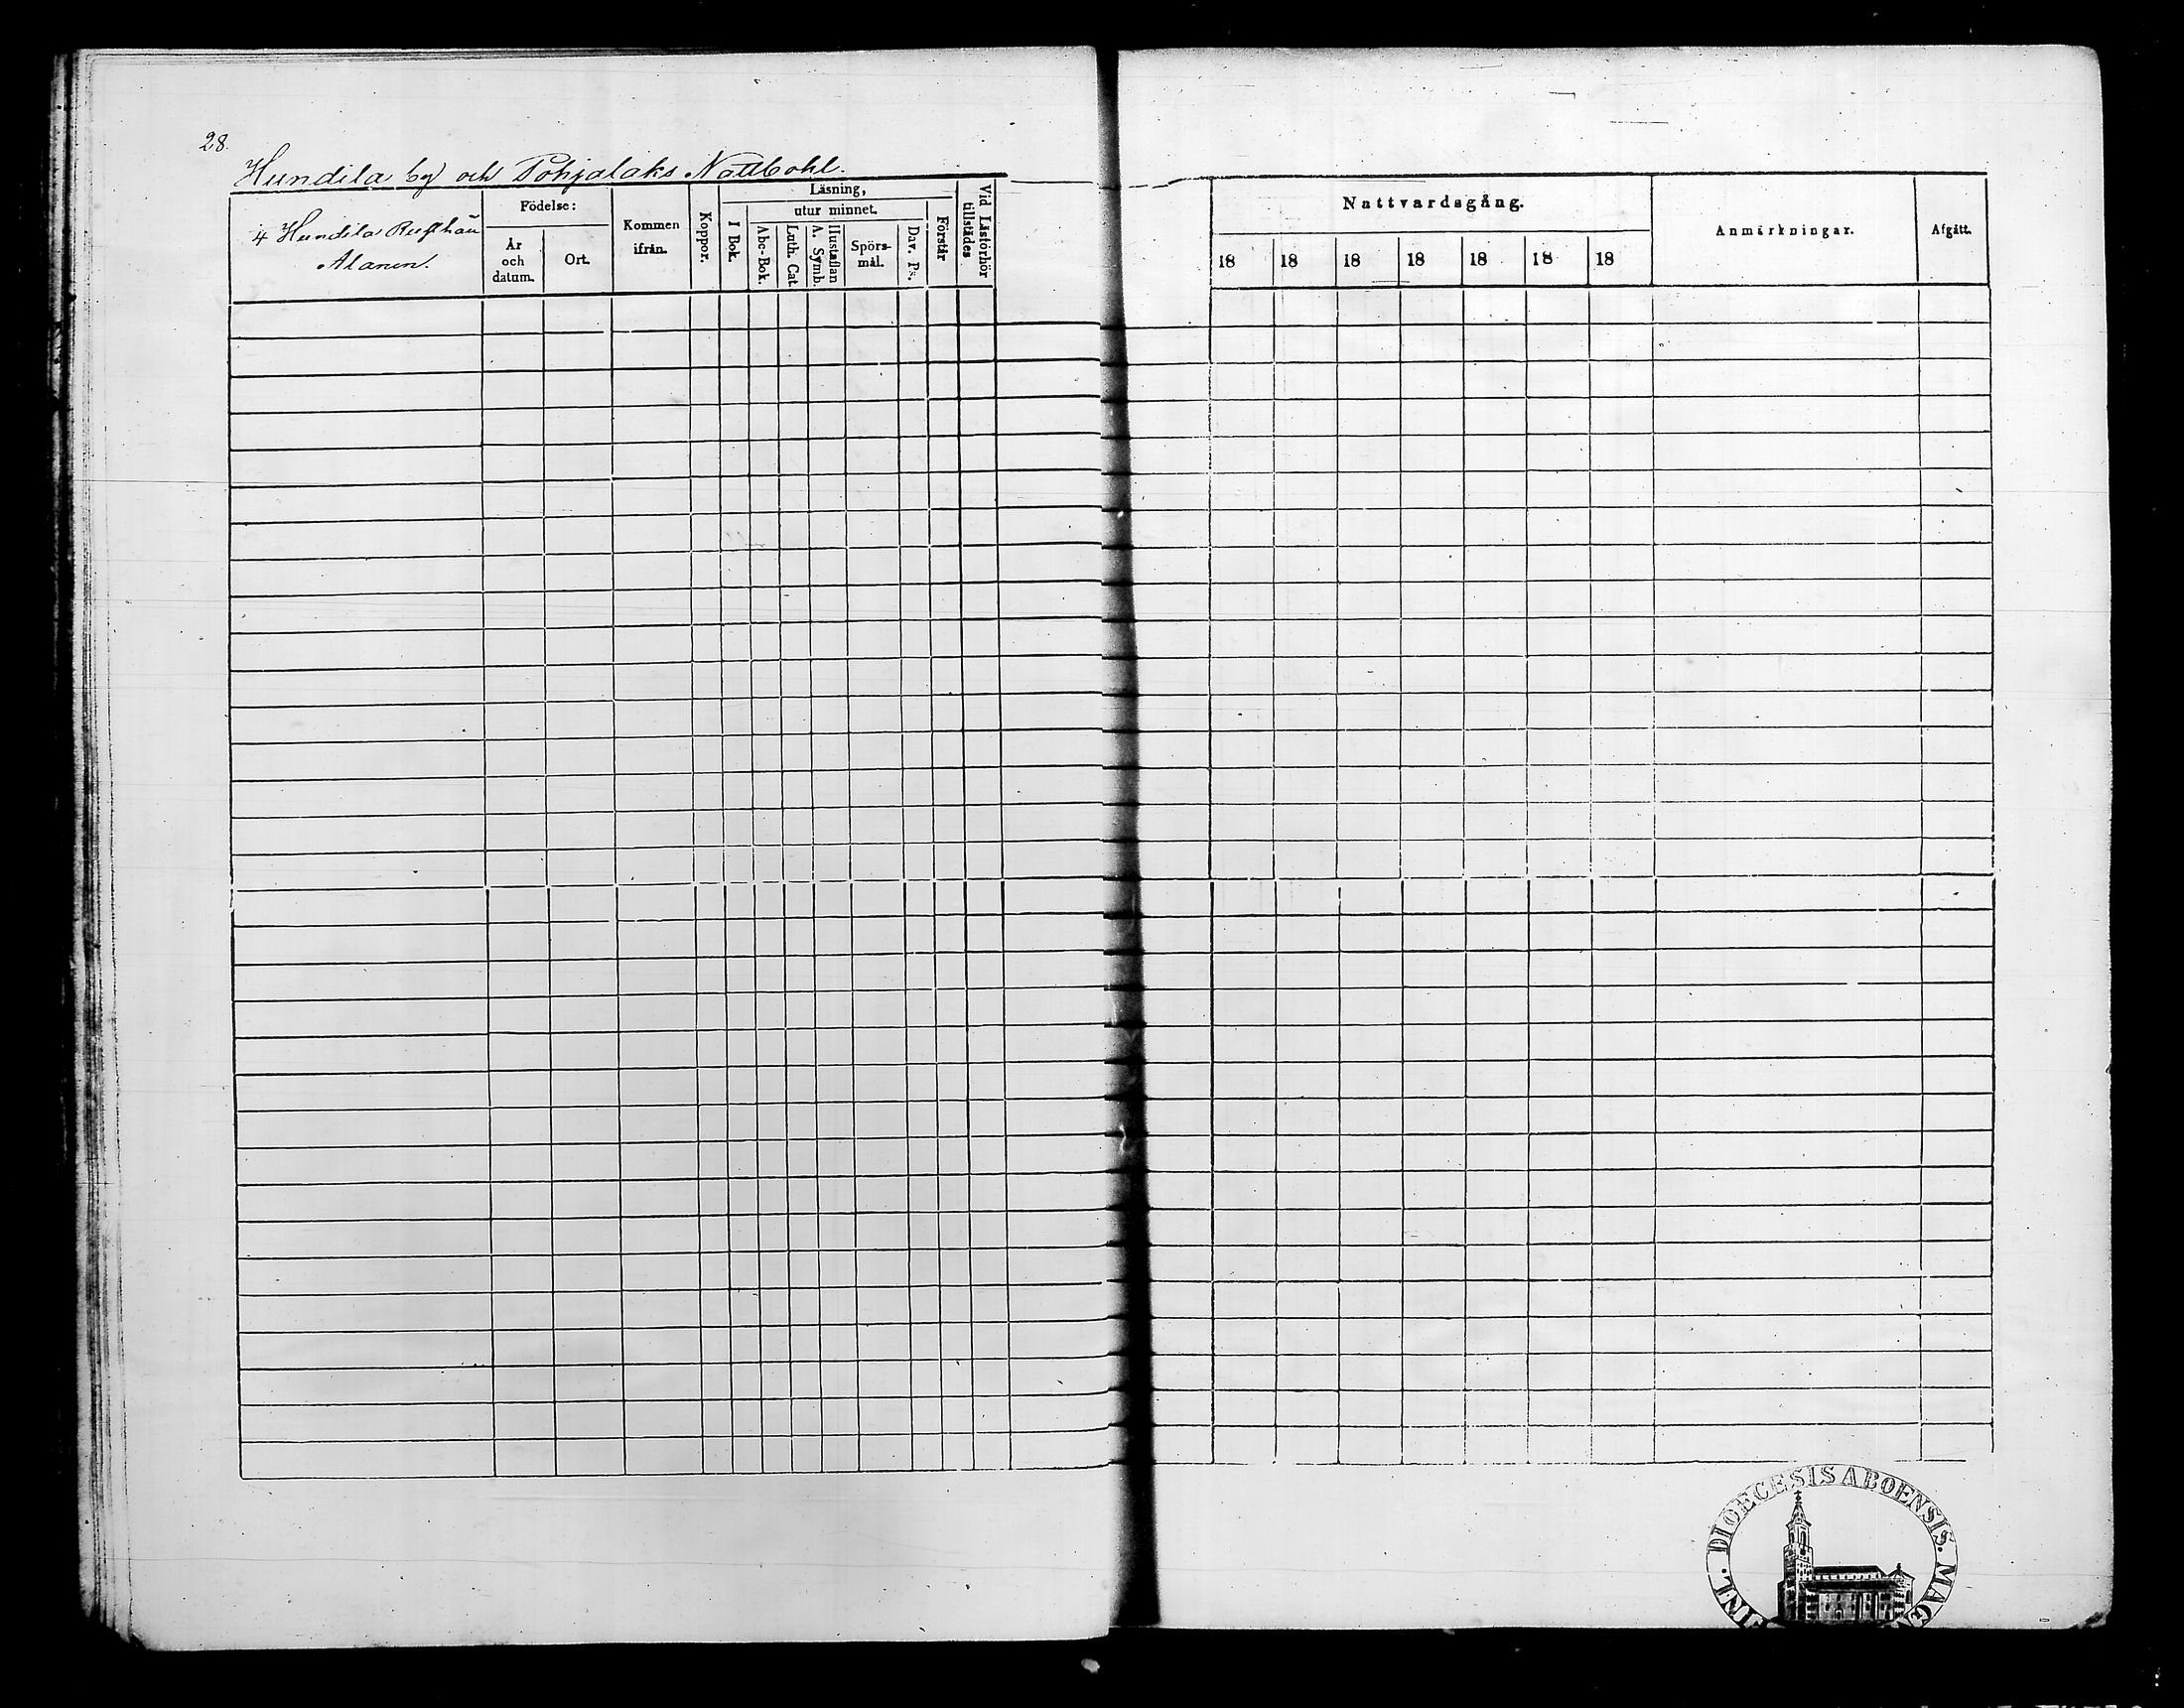 28.
Hundila by och Pohjalaks Nattbohl.
4 Hundila Rusthåll
Alanen.
Födelse:
År
och
datum.
Ort.
Kommen
ifrån.
Koppor.
Läsning,
utur minnet.
I Bok.
Abc-Bok.
Luth. Cat.
Hustaflan
A. Symb.
Spörs-
mål.
Dav. Ps.
Förstår
Vid Läsförhör
tillstädes
Nattvardsgång.
18 18 18 18 18 18 18
Anmärkningar.
Afgått.
DIOECESIS ABOENSIS. MAG